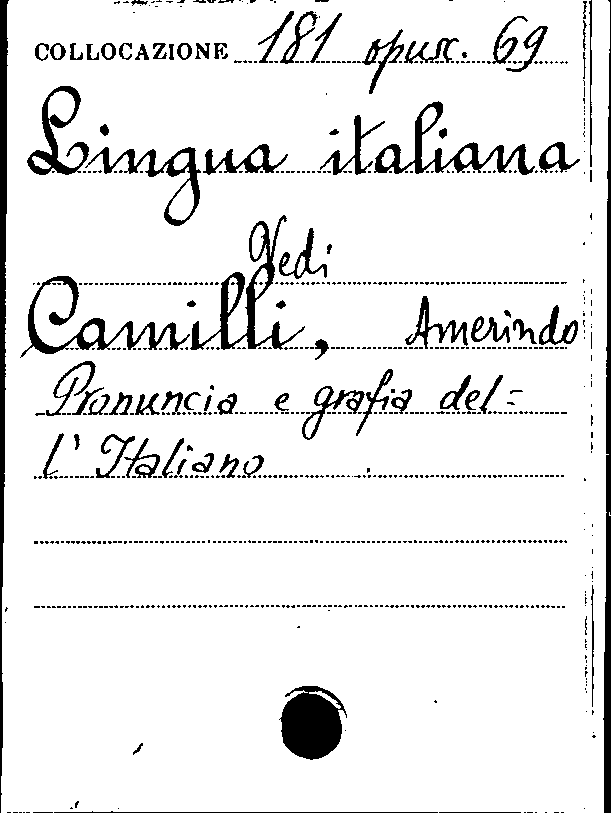 COLLOCAZIONE 181 opusc. 69
Lingua italiana
Vedi
Camilli, Amerindo
Pronuncia e grafia del=
l' Italiano